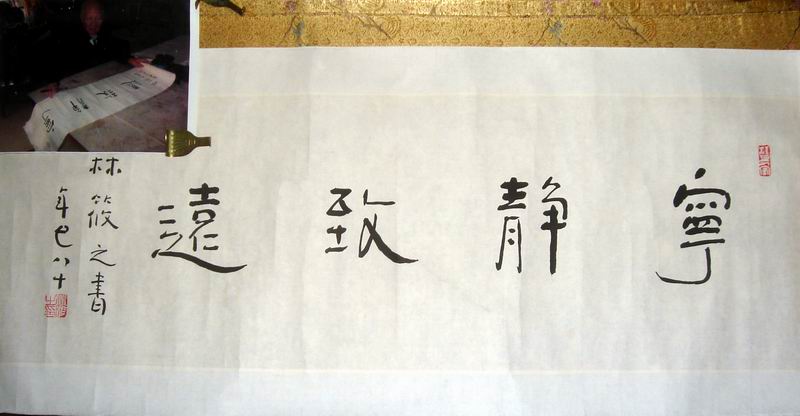 寧靜致遠
林筱之書
年已八十